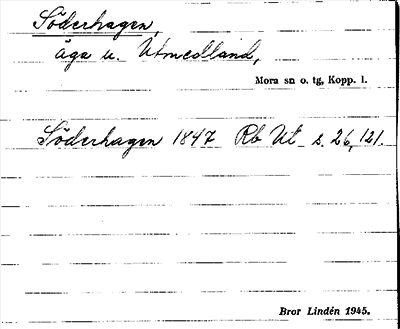 Söderhagen,
äga u. Utmedland,
Mora sn o. tg, Kopp. l.
Söderhagen 1847 Rb Ut s. 26, 121.
Bror Lindén 1945.